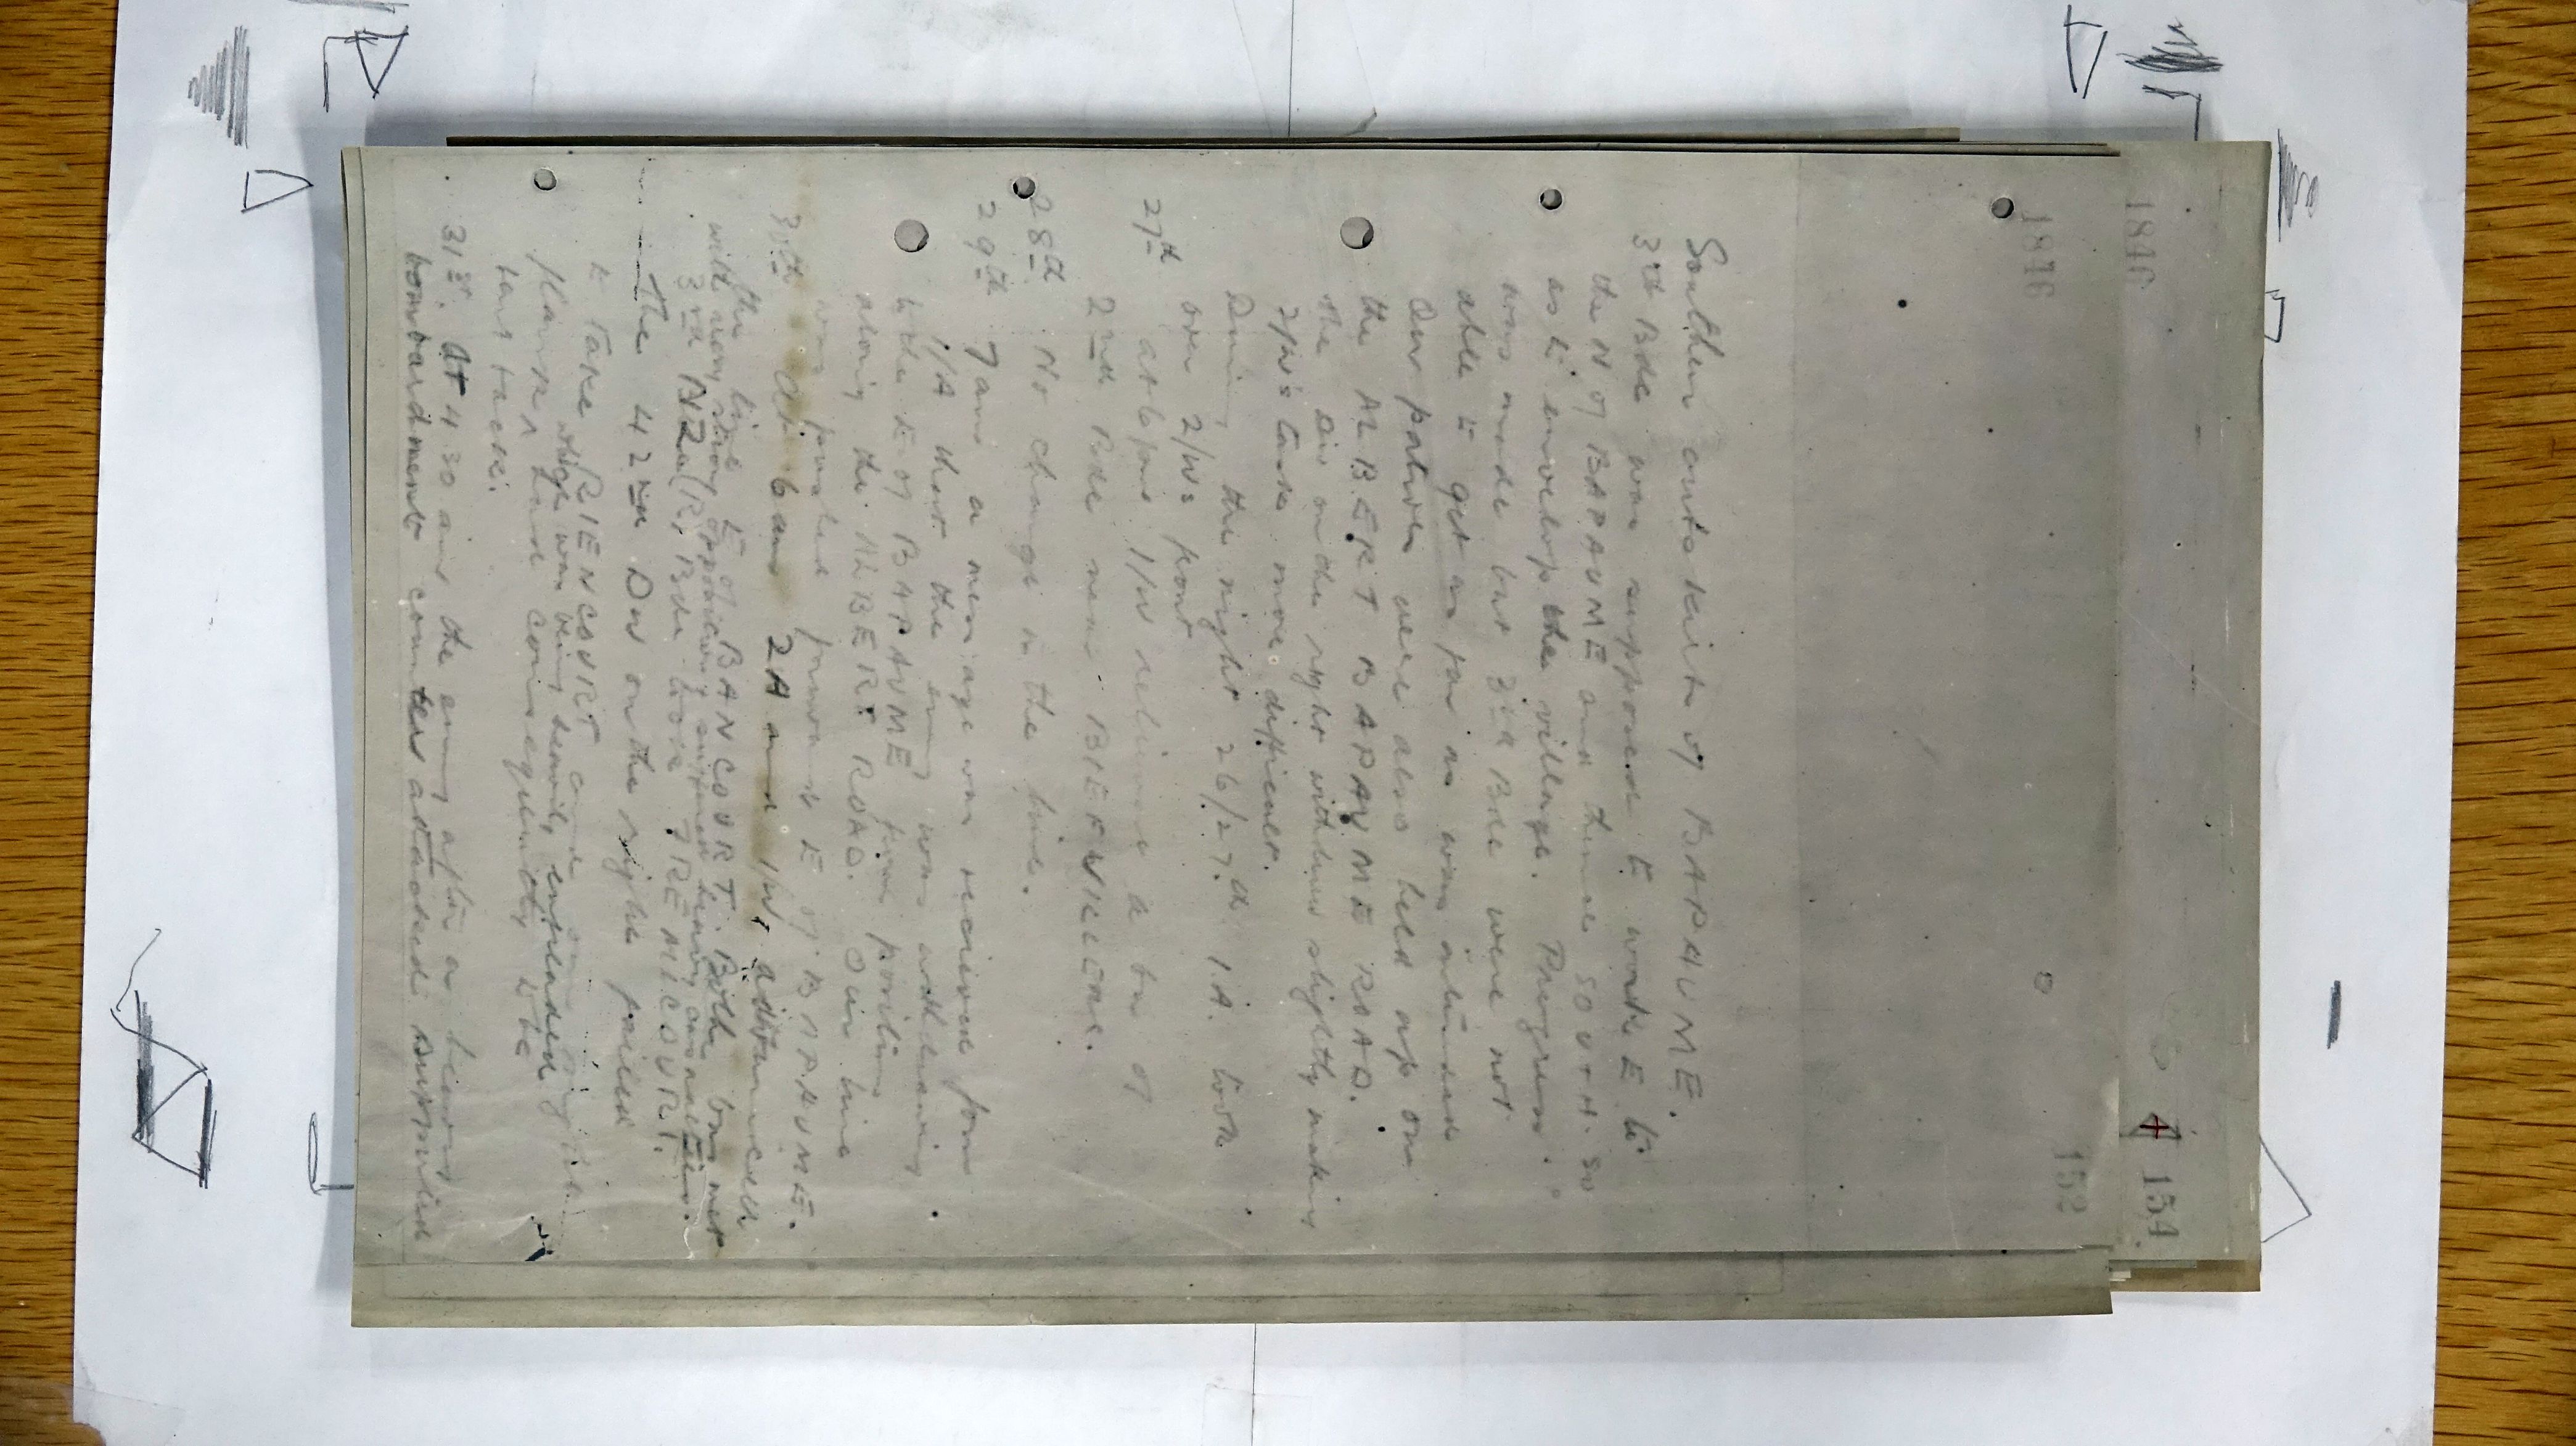 1846
154
1846
152
Southern outskirts of BAPAUME.
3rd Bde was supposed to work E to
the N of BAPAUME and thence SOUTH. so
as to envelop the village. Progress
was made but 3rd Bde were not
able to get as far as was intended
Our patrols were also held up on
the ALBERT BAPAUME ROAD.
The Div on the right withdrew slightly making
2/W's task more difficult.
During the night 26/27th 1.A. took
over 2/Ws front
27th at 6pm 1/W relieved a bn of
2nd Bde near BIEFVILLERS.
28th No change in the line.
29th 7am a message was received from
1/A that the enemy was withdrawing
to the E of BAPAUME from positions
along the ALBERT ROAD. Our line
was pushed forward E of BAPAUME.
30th At 5 am 2A and 1/W, attacked
the line E of BANCOURT. Both bns met
with very strong opposition & suffered heavy casualties.
3rd NZ(R) Bde took FREMICOURT.
The 42nd Div on the right failed
to take RIENCOURT and our right
flank which was being heavily enfiladed had consequently to be
bent back.
31st. At 4 30 am the enemy after a heavy
bombardment counter attacked supported